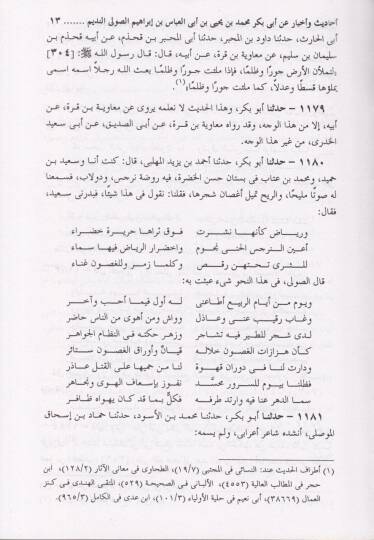 أحاديث وأخبار عن أبى بكر محمد بن يحيى بن أبى العباس بن إبراهيم الصولى النديم ....... ١٣
أبى الحارث، حدثنا داود بن المحبر، حدثنا أبى المحبر بن قحذم، عن أبيه قحذم بن
سليمان بن سليم، عن معاوية بن قرة، عن أبيه، قال: قال رسول الله ﷺ: [٣٠٤]
«لتملأن الأرض جورًا وظلمًا، فإذا ملئت جورًا وظلمًا بعث الله رجلاً اسمه اسمى
يملؤها قسطًا وعدلاً، كما ملئت جورًا وظلمًا»(١).
١١٧٩ – حدثنا أبو بكر، وهذا الحديث لا نعلمه يروى عن معاوية بن قرة، عن
أبيه، إلا من هذا الوجه، وقد رواه معاوية بن قرة، عن أبى الصديق، عن أبى سعيد
الخدرى، من غير هذا الوجه.
١١٨٠ – حدثنا أبو بكر، حدثنا أحمد بن يزيد المهلبى، قال: كنت أنا وسعيد بن
حميد، ومحمد بن عتاب فى بستان حسن الخضرة، فيه روضة نرجس، ودولاب، فسمعنا
له صوتًا مليحًا، والريح تميل أغصان شجرها، فقلنا: نقول فى هذا شيئًا، فبدرنى سعيد،
فقال:
ورياض كأنهـا نشـرت فوق ثراها حريـرة خضـراء
أعين النرجس الجنـى نجـوم واخضرار الرياض فيها سماء
للـثرى تحتهـن رقـص وكلمـا زمـر وللغصون غناء
قال الصولى، فى هذا النحو شىء عبثت به:
ويوم من أيـام الربيع أطاعنى له أول فيما أحـب وآخـر
وغاب رقيب عنى وعـاذل وواش ومن أهوى من الناس حاضر
لدى شجر للطير فيه تشاجر وزهر حكته فى النظام الجواهر
كأن هزازات الغصون خلاله قيانٌ وأوراق الغصـون ستائر
ودارت لنا فى دوران قهوة لنا من حميها على القتل عاذر
فظلنـا بيوم للسرور محسَّد نفوز بإسعاف الهوى ونجاهر
سما الدهر عنا فيه وارتد طرفه فكلٌّ بما قد كان يهواه ظافـر
١١٨١ – حدثنا أبو بكر، حدثنا محمد بن الأسود، حدثنا حماد بن إسحاق
الموصلى، أنشده شاعر أعرابى، ولم يسمه:
(١) أطراف الحديث عند: النسائى فى المجتبى (١٩/٧)، الطحاوى فى معانى الآثار (١٢٨/٢)، ابن
حجر فى المطالب العالية (٤٥٥٣)، الألبانى فى الصحيحة (٥٢٩)، المتقى الهندى فى كنز
العمال (٣٨٦٦٩)، أبى نعيم فى حلية الأولياء (١٠١/٣)، ابن عدى فى الكامل (٩٦٥/٣).